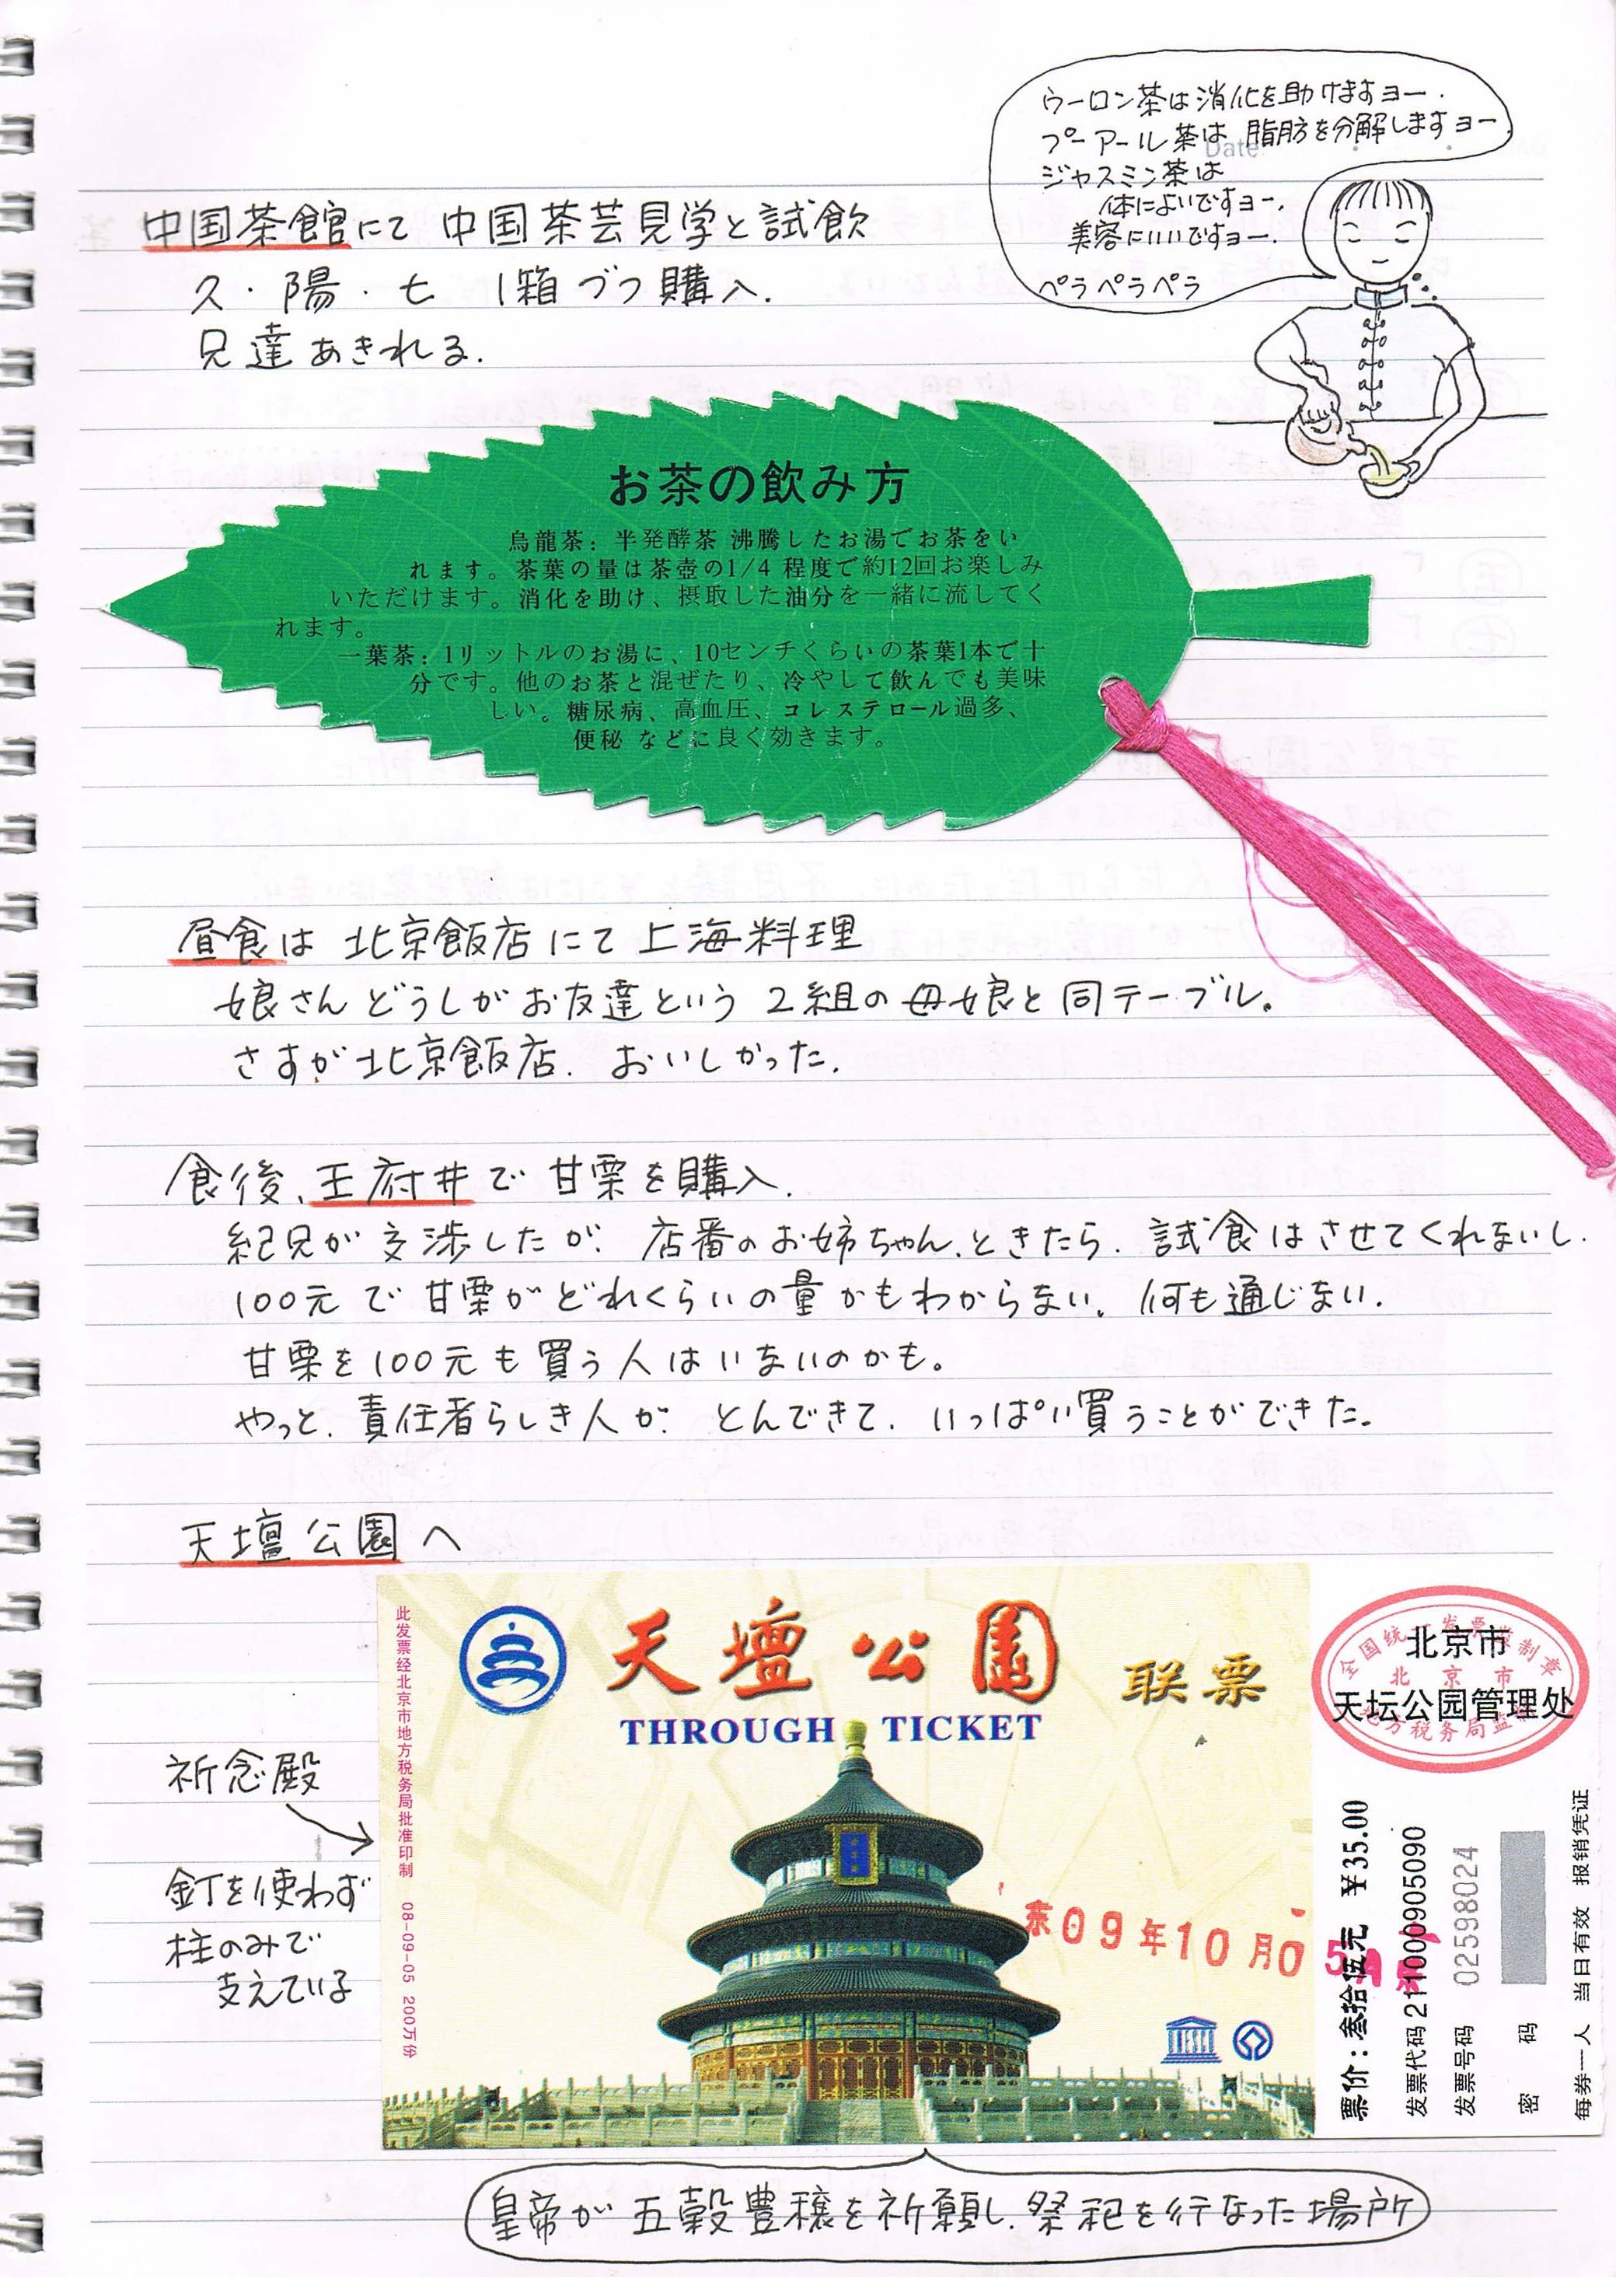 ウーロン茶は消化を助けますョー.
プーアール茶は 脂肪を分解しますョー
Date
ジャスミン茶は
体によいですョー.
美容にいいですョー.
ペラペラペラ
中国茶館にて 中国茶芸見学と試飲
久・陽・七 1箱づつ購入.
兄達あきれる.
お茶の飲み方
烏龍茶：半発酵茶 沸騰したお湯でお茶をい
れます。茶葉の量は茶壺の1/4 程度で約12回お楽しみ
いただけます。消化を助け、摂取した油分を一緒に流してく
れます。
一葉茶：1リットルのお湯に、10センチくらいの茶葉1本で十
分です。他のお茶と混ぜたり、冷やして飲んでも美味
しい。糖尿病、高血圧、コレステロール過多、
便秘 などに良く効きます。
昼食は 北京飯店にて上海料理
娘さんどうしがお友達という 2組の母娘と同テーブル。
さすが北京飯店. おいしかった.
食後、王府井で 甘栗を購入.
紀兄が交渉したが. 店番のお姉ちゃん、ときたら. 試食はさせてくれないし.
100元で甘栗がどれくらいの量かもわからない. 何も通じない.
甘栗を100元も買う人はいないのかも。
やっと、責任者らしき人が. とんできて. いっぱい買うことができた.
天壇公園へ
此发票经北京市地方税务局批准印制 08-09-05 200万份
天壇公園 联票
THROUGH TICKET
祈念殿
釘を使わず
柱のみで
支えている
东09年10月05
全国统一发票监制章
北京市
地方税务局监制
北京市
天坛公园管理处
票价：叁拾伍元 ¥35.00
发票代码 211000905090
发票号码 02598024
密 码
每券一人 当日有效 报销凭证
皇帝が五穀豊穣を祈願し. 祭祀を行なった場所